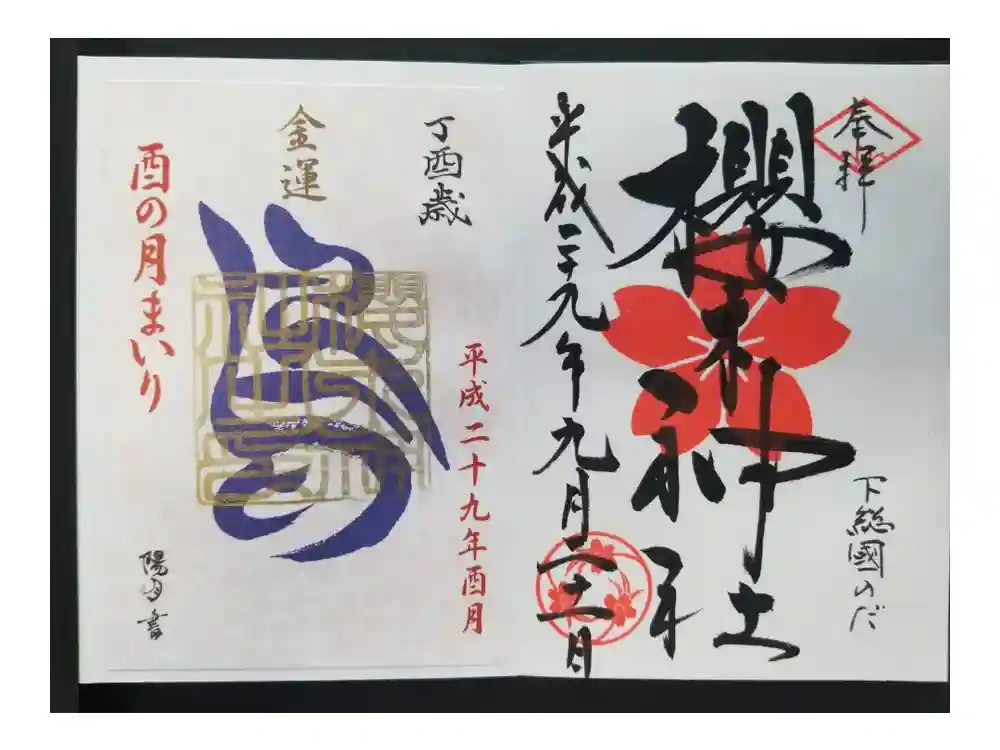 奉拝
下総國のだ
櫻木神社
平成二十九年九月二十一日
丁酉歳
平成二十九年酉月
金運
酉の月まいり